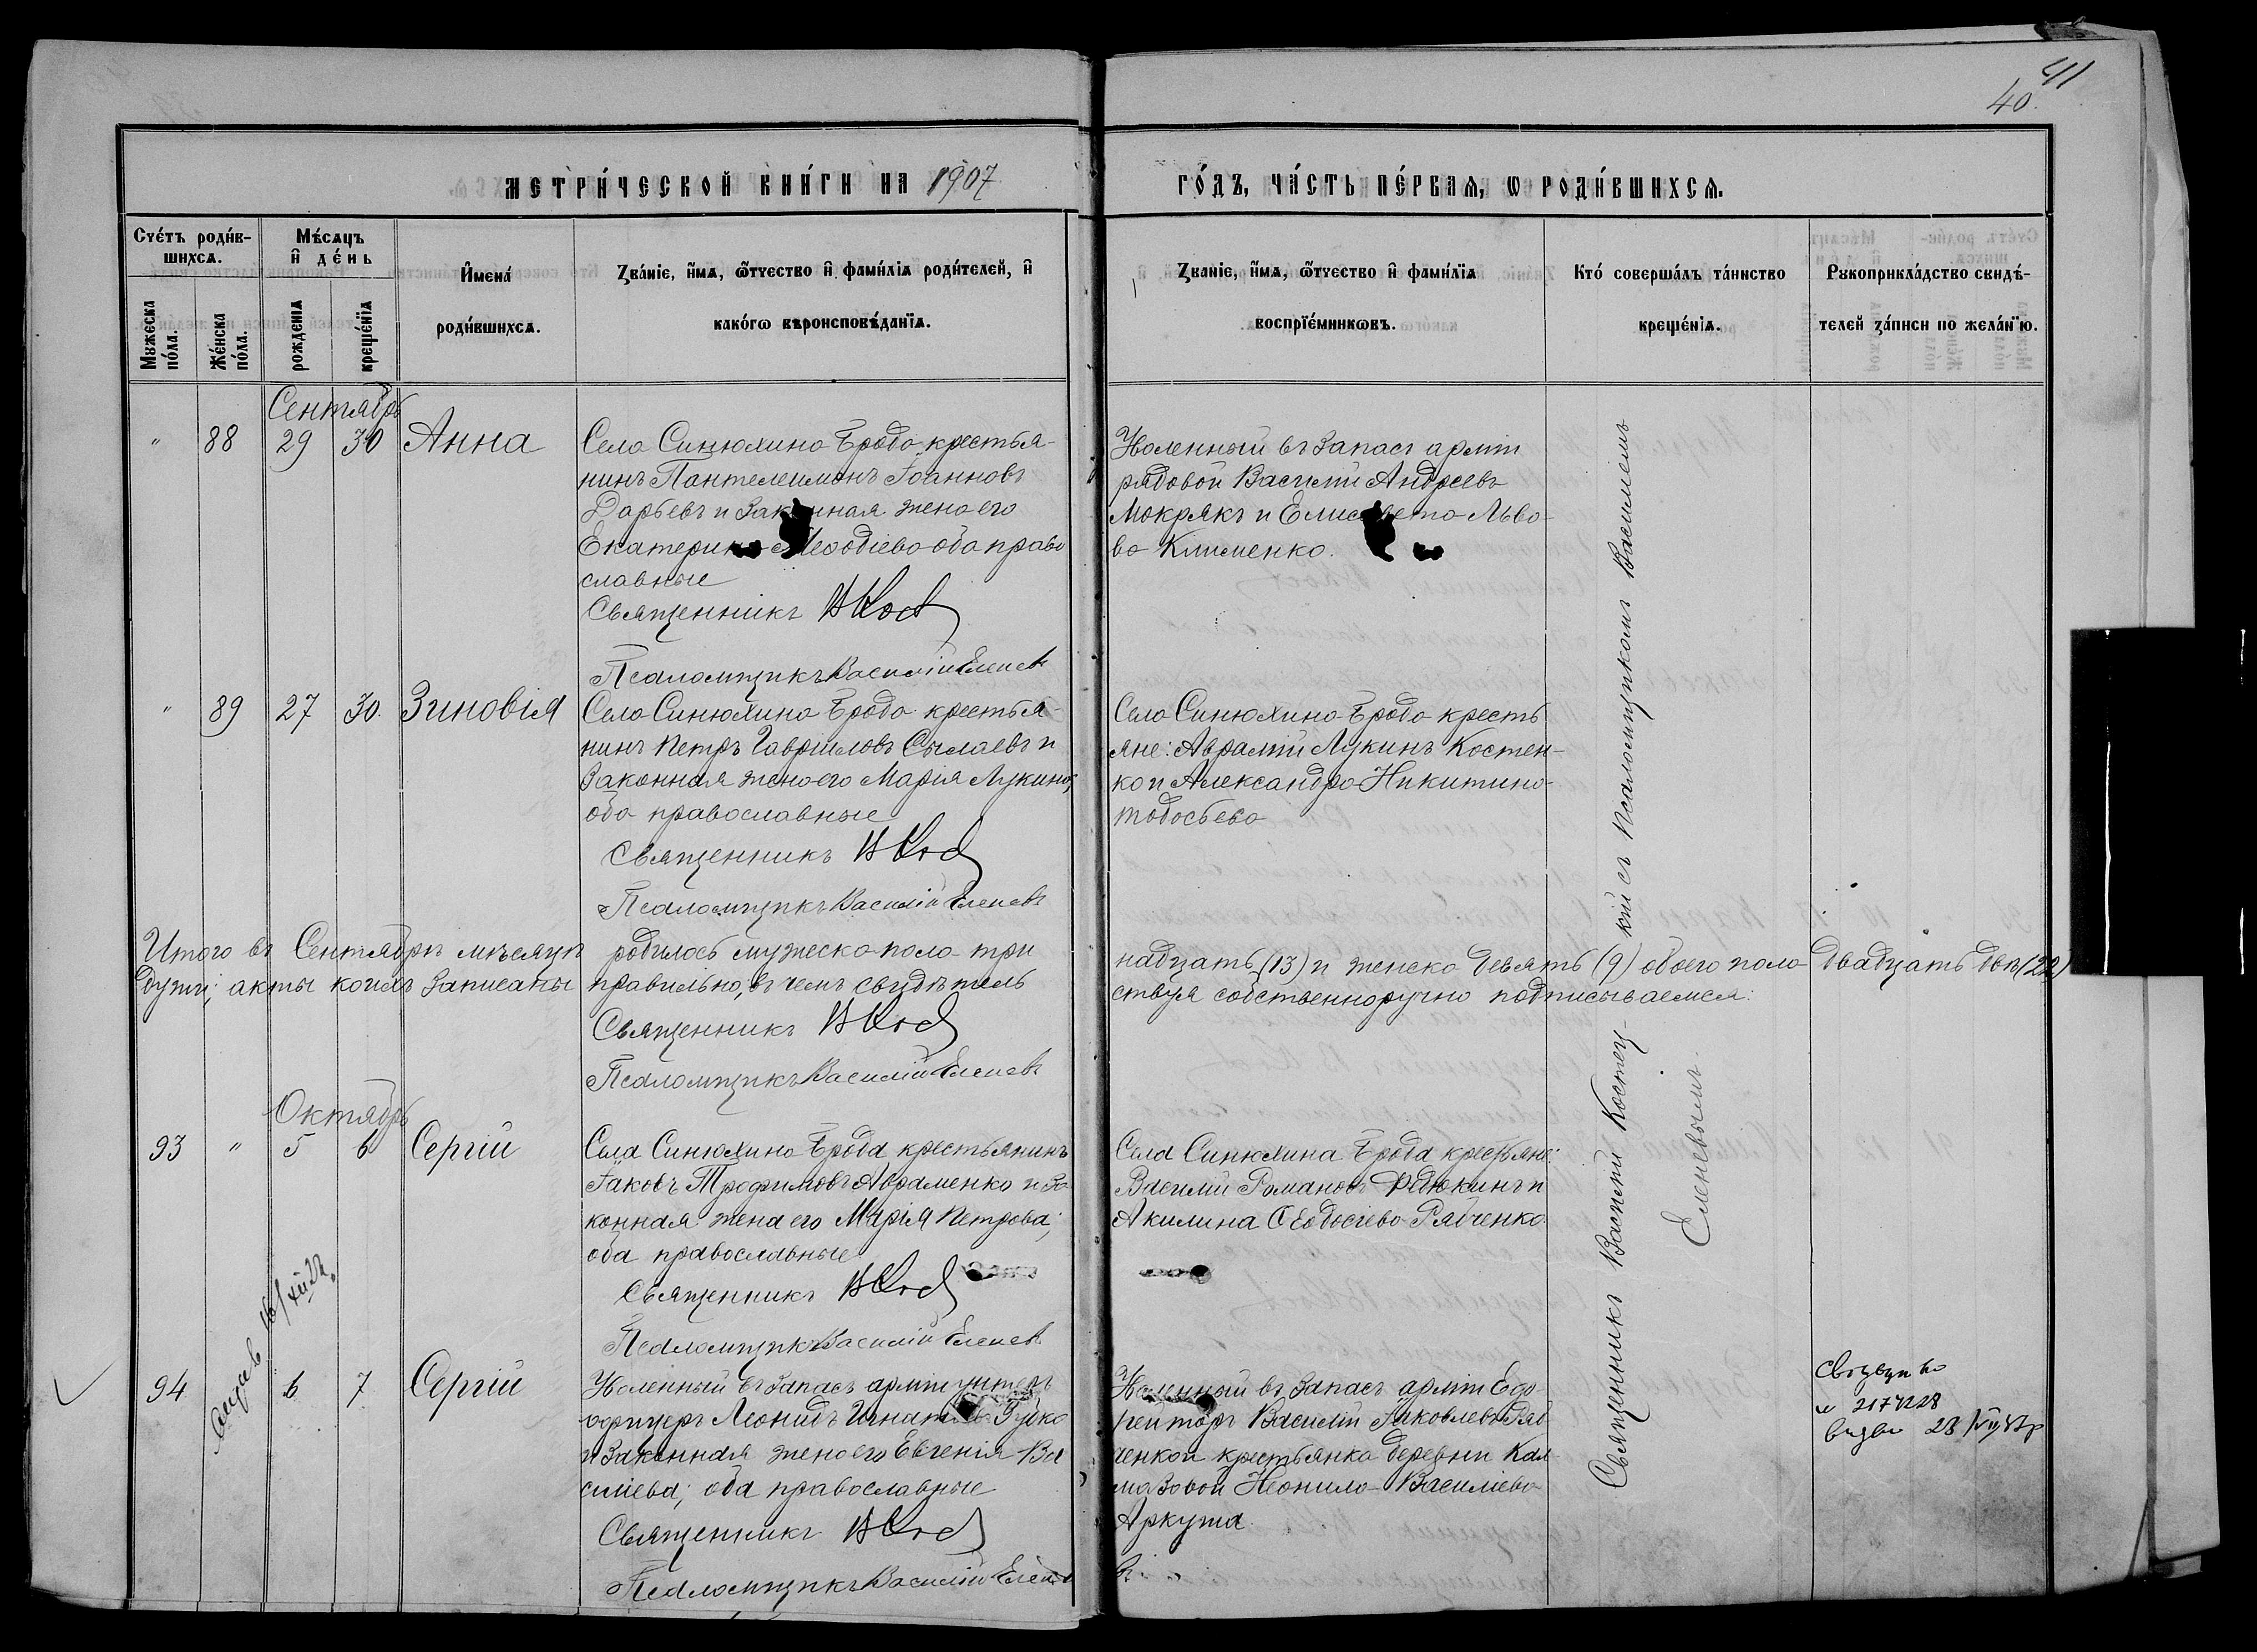 41
40.
МЕТРИ́ЧЕСКОЙ КНИ́ГИ НА 1907
ГО́ДЪ, ЧА́СТЬ ПЕ́РВАѦ, Ѡ РОДИ́ВШИХСѦ.
Счéтъ роди́в-
шихсѧ.
Мꙋжеска
по́ла.
Же́нска
по́ла.
Мѣ́сѧцъ
и҆ де́нь
рожденїѧ
креще́нїѧ
И҆мена́
роди́вшихсѧ.
Зва́нїе, и҆́мѧ, ѻ҆́тчество и҆ фамíлїѧ роди́телей, и҆
како́гѡ вѣроисповѣ́данїѧ.
Званїе, и҆́мѧ, ѻ҆́тчество и҆ фамíлїѧ
воспрїе́мникѡвъ.
Кто́ соверша́лъ та́инство
креще́нїѧ.
Рꙋкоприкла́дство свидѣ́-
телей за́писи по жела́нїю.
Сентябрь
" 88 29 30 Анна
Села Синюхина Брода крестья-
нинъ Пантелеимонъ Іоанновъ
Дарьевъ и законная жена его
Екатерина Меѳодіева оба право
славные
Священникъ
Псаломщикъ Василій Еленевъ
Уволенный въ запасъ арміи
рядовой Василий Андреевъ
Мокрякъ и Елисавета Льво-
ва Клименко.
" 89 27 30. Зиновія
Села Синюхина Брода крестья-
нинъ Петръ Гавріиловъ Сылаевъ и
законная жена его Марія Лукина,
оба православные
Священникъ
Псаломщикъ Василій Еленевъ
Села Синюхина Брода кресть
яне: Аврамій Лукинъ Костен-
ко и Александра Никитина-
Итого въ Сентябрѣ мѣсяцѣ родилось мужеска пола три
надцать (13) и женска девять (9) обоего пола двадцать двѣ (22)
души; акты коихъ записаны правильно, въ чемъ свидѣтель
ствуя собственноручно подписываемся:
Священникъ
Псаломщикъ Василій Еленевъ
Октябрь
93 " 5 6 Сергій
Села Синюхина Брода крестьянинъ
Іаковъ Трофимовъ Авраменко и за
конная жена его Марія Петрова;
оба православные
Священникъ
Псаломщикъ Василій Еленевъ
Села Синюхина Брода крестьяне:
Василій Романовъ Рябченко
Акилина Ѳеодосіева Рябченко.
94 6 7 Сергій
Уволенный въ запасъ арміи унтеръ
офицеръ Леонидъ Игнатіевъ
и законная жена его Евгенія Ва
силіева; оба православные
Священникъ
Псаломщикъ Василій Еленевъ
Уволенный въ запасъ арміи Ефр
Василій Іаковлевъ Ряб
ченко и крестьянка деревни Кал
мазовой Неонила Василіева
Аркуша.
Священникъ Василій Костец-
кій съ Псаломщикомъ Василіемъ
Еленевымъ.